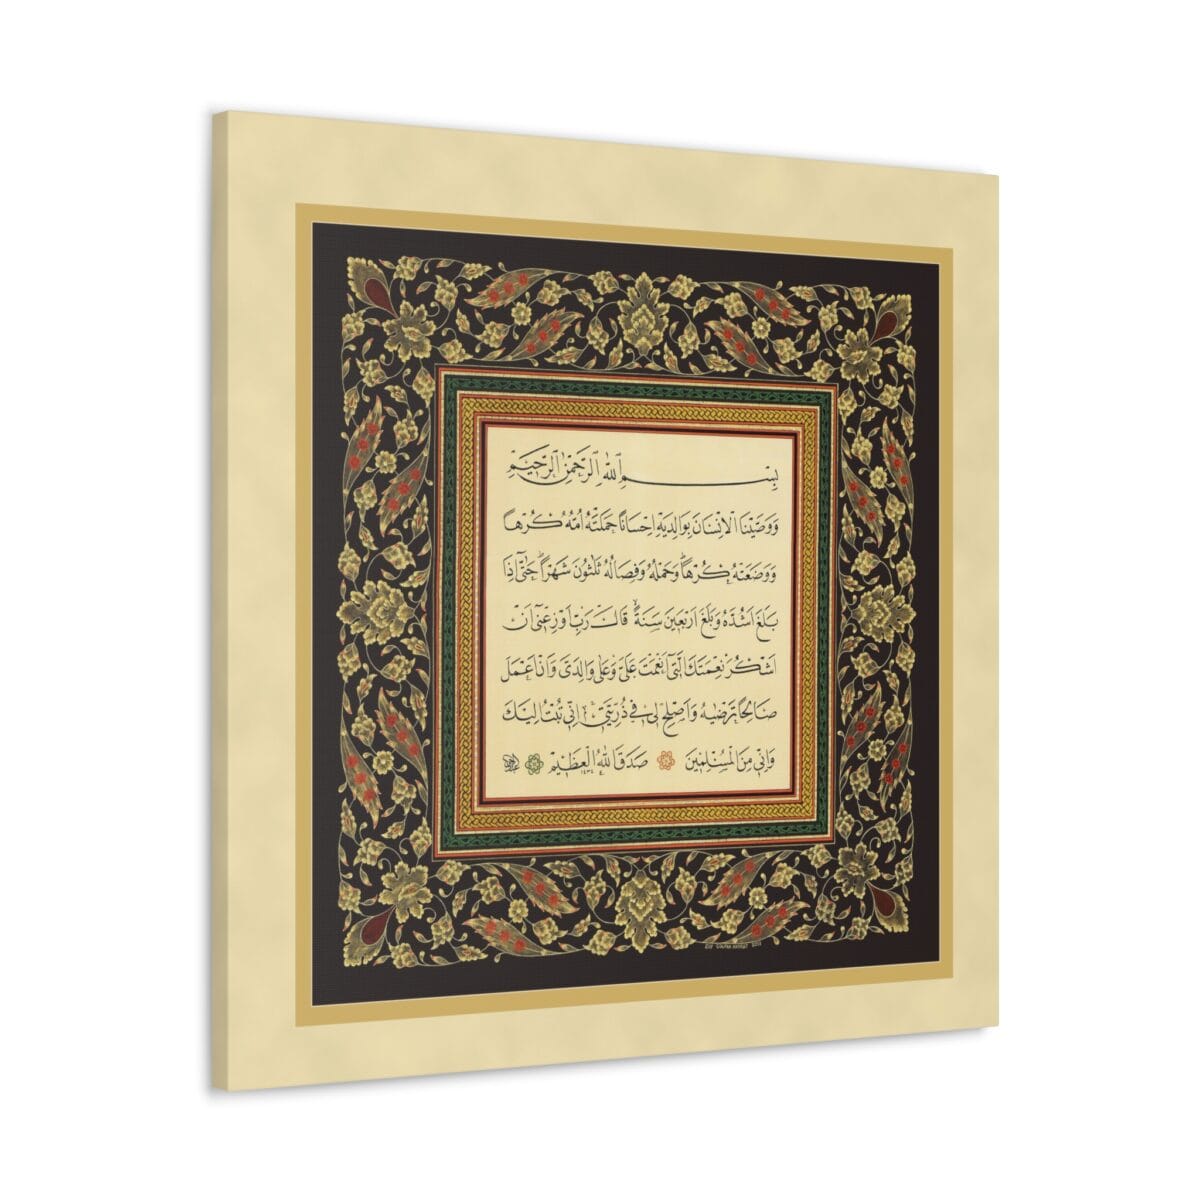 بِسْمِ اللهِ الرَّحْمٰنِ الرَّحِيْمِ
وَوَصَّيْنَا الْاِنْسَانَ بِوَالِدَيْهِ اِحْسَانًا حَمَلَتْهُ اُمُّهُ كُرْهًا
وَوَضَعَتْهُ كُرْهًاۜ وَحَمْلُهُ وَفِصَالُهُ ثَلٰثُونَ شَهْرًاۜ حَتّٰٓى اِذَا
بَلَغَ اَشُدَّهُ وَبَلَغَ اَرْبَعِينَ سَنَةًۙ قَالَ رَبِّ اَوْزِعْنِىٓ اَنْ
اَشْكُرَ نِعْمَتَكَ الَّتِىٓ اَنْعَمْتَ عَلَىَّ وَعَلٰى وَالِدَىَّ وَاَنْ اَعْمَلَ
صَالِحًا تَرْضٰيهُ وَاَصْلِحْ لِى فِى ذُرِّيَّتِىۚ اِنِّى تُبْتُ اِلَيْكَ
وَاِنِّى مِنَ الْمُسْلِمِينَ صَدَقَ اللهُ الْعَظِيْمُ ١٤٣٤